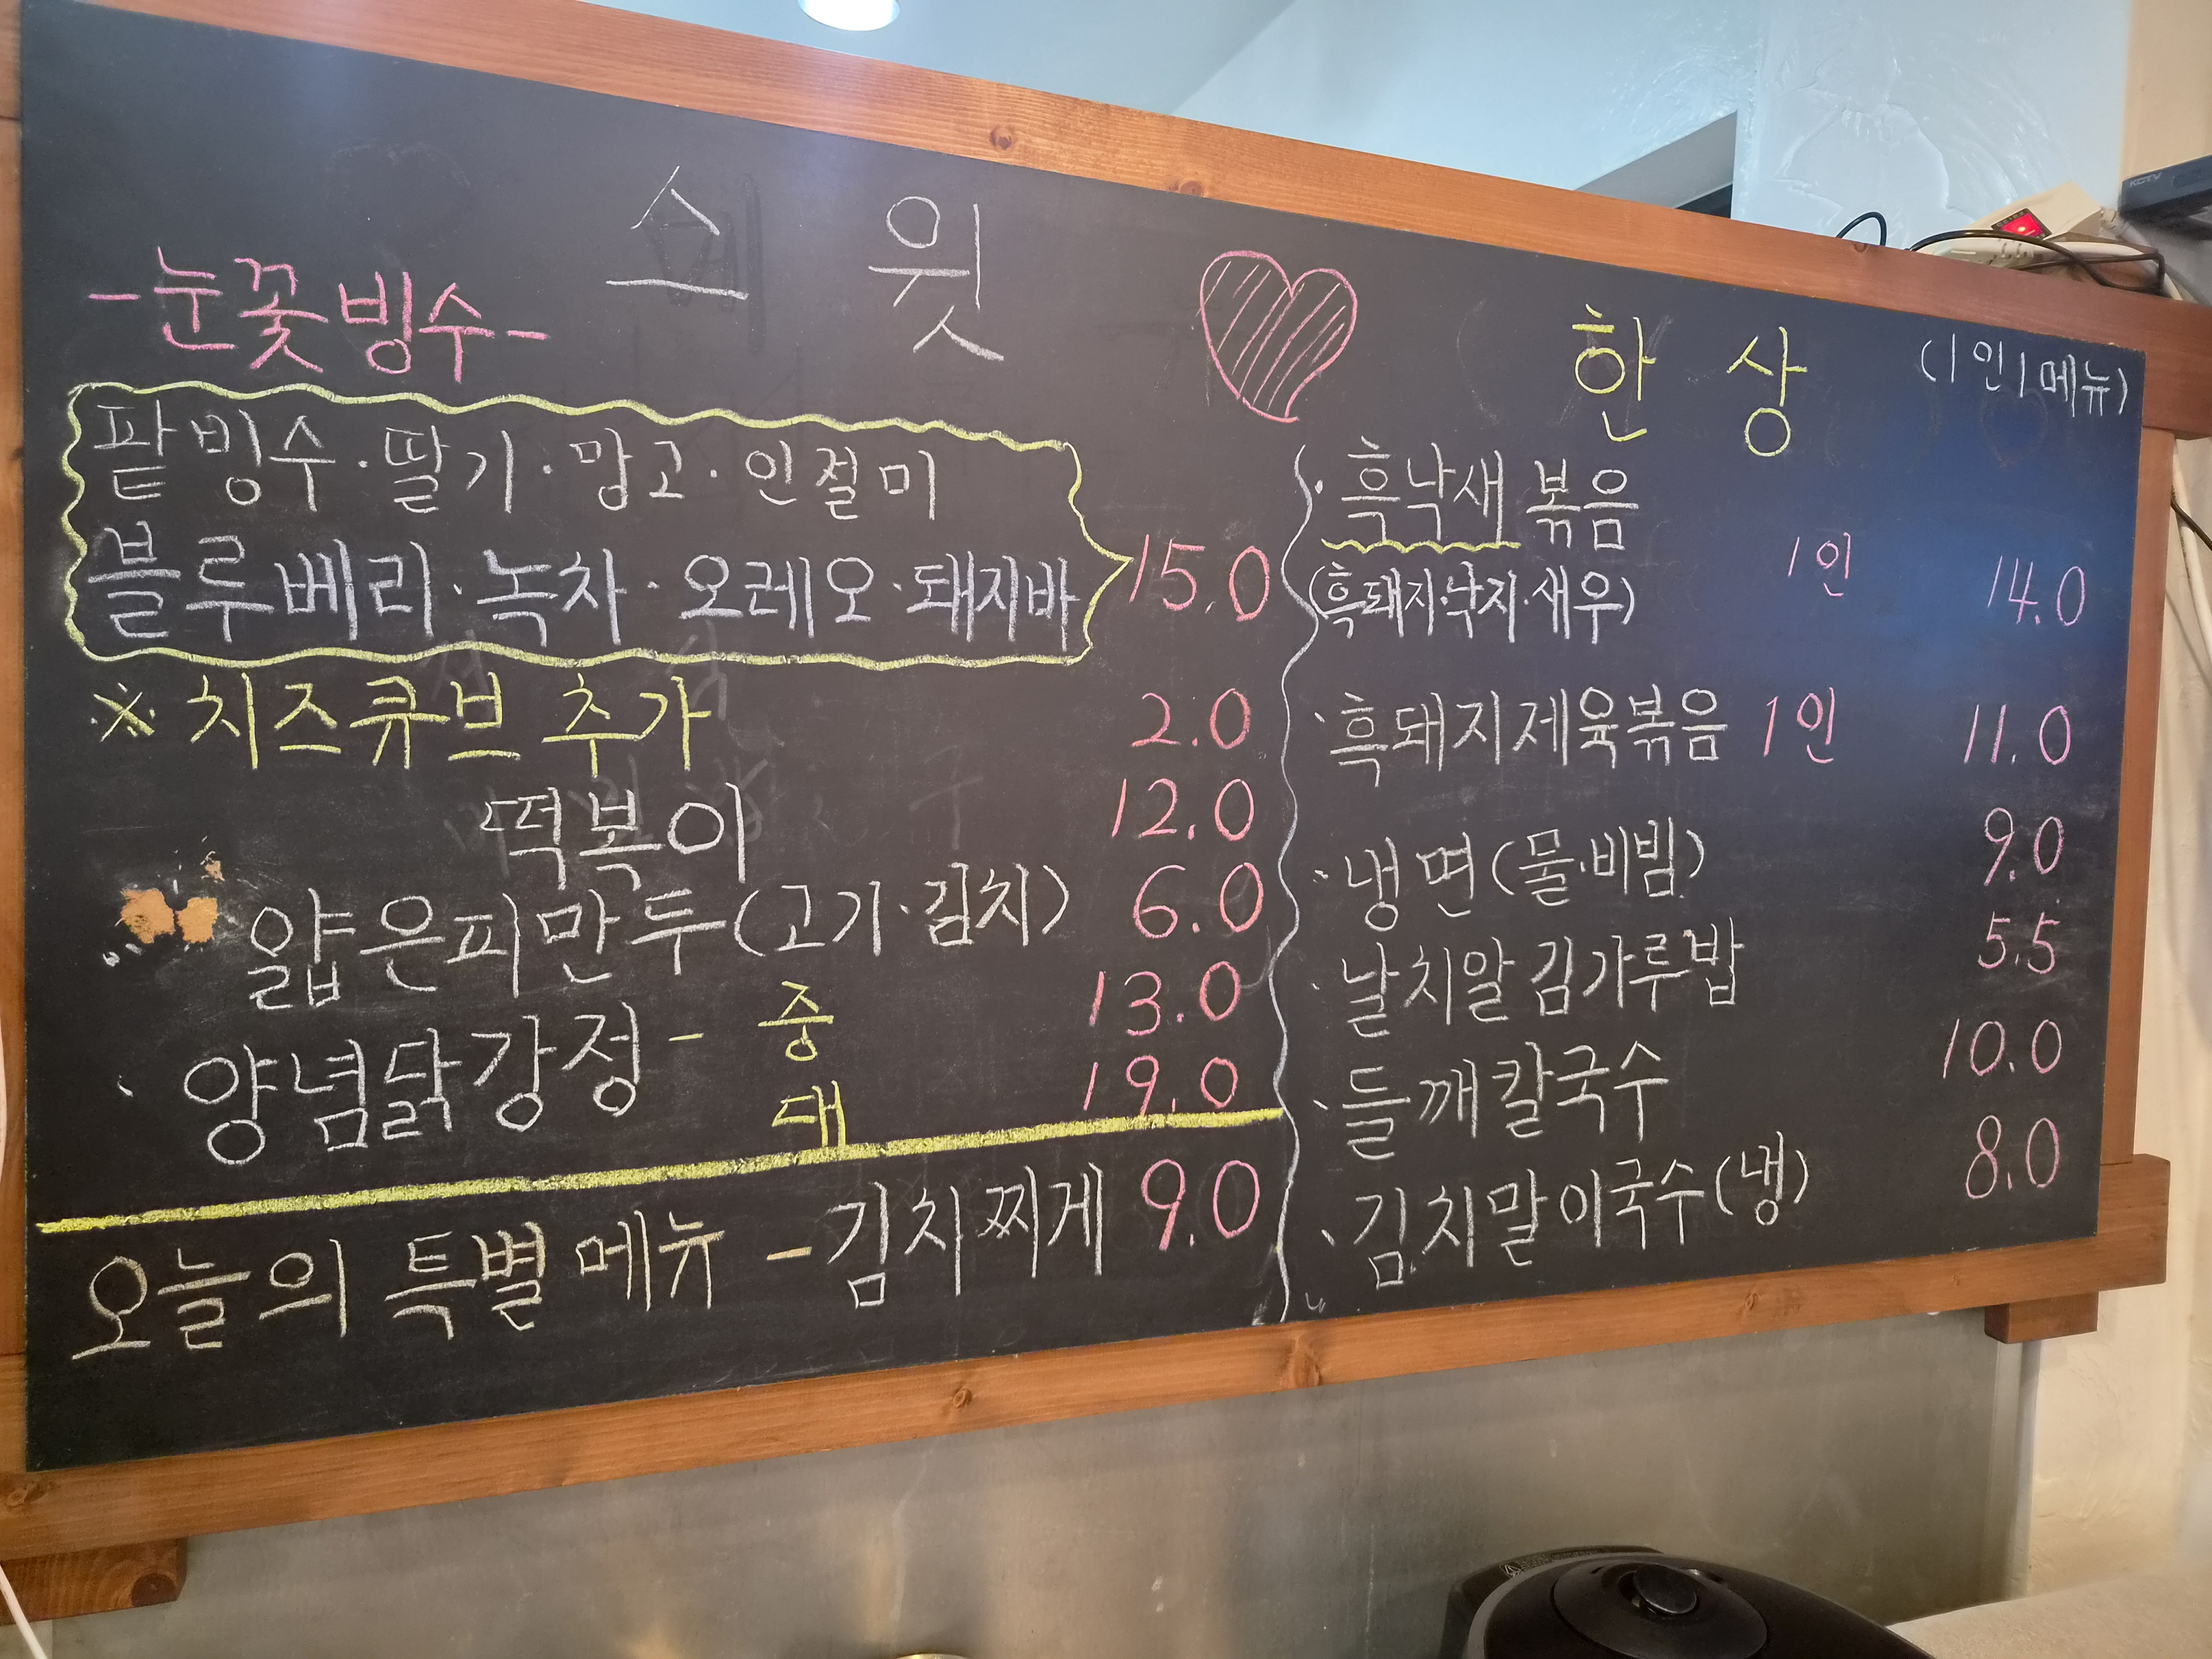 스윗
한상 (1인1메뉴)
-눈꽃빙수-
팥빙수·딸기·망고·인절미
블루베리·녹차·오레오·돼지바 15.0
※ 치즈큐브 추가 2.0
떡볶이 12.0
얇은피만두(고기·김치) 6.0
· 양념닭강정- 중 13.0
대 19.0
오늘의 특별메뉴 -김치찌게 9.0
· 흑낙새 볶음
(흑돼지·낙지·새우) 1인 14.0
· 흑돼지제육볶음 1인 11.0
· 냉면(물·비빔) 9.0
· 날치알 김가루밥 5.5
· 들깨칼국수 10.0
· 김치말이국수(냉) 8.0
KCTV